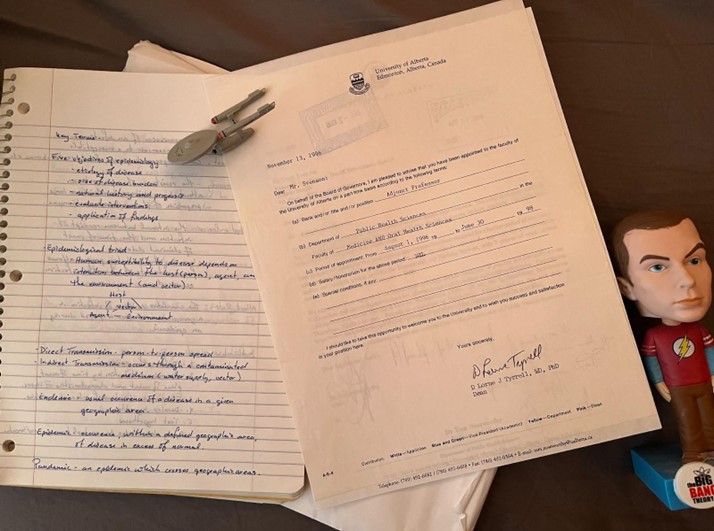 Key Terms
Five objectives of epidemiology
- etiology of disease
- size of disease burden
- natural history and prognosis
- evaluate interventions
- application of findings
Epidemiological triad
- Human susceptibility to disease depends on
interaction between the host (person), agent, and
the environment (and vector)
Host
Vector
Agent - Environment
- Direct Transmission - person-to-person spread
- Indirect Transmission - occurs through a contaminated
medium (water supply, vector)
Endemic - usual occurence of a disease in a given
geographic area
Epidemic - occurence, within a defined geographic area,
of disease in excess of normal.
Pandemic - an epidemic which crosses geographic areas.
University of Alberta
Edmonton, Alberta, Canada
November 13, 1998
Dear Mr.
On behalf of the Board of Governors, I am pleased to advise that you have been appointed to the faculty of
the University of Alberta on a part time basis according to the following terms:
(a) Rank and/or title and/or position Adjunct Professor
in the
(b) Department of Public Health Sciences
Faculty of Medicine and Oral Health Sciences
(c) Period of appointment From August 1, 1998 to June 30 19 99
(d) Salary/honorarium for the above period NIL
(e) Special conditions, if any
I should like to take this opportunity to welcome you to the University and to wish you success and satisfaction
in your position here.
Yours sincerely,
D Lorne Tyrrell
D Lorne J Tyrrell, MD, PhD
Dean
Distribution White - Appointee Blue and Green - Vice President (Academic) Yellow - Department Pink - Dean
the BIG
BANG
THEORY